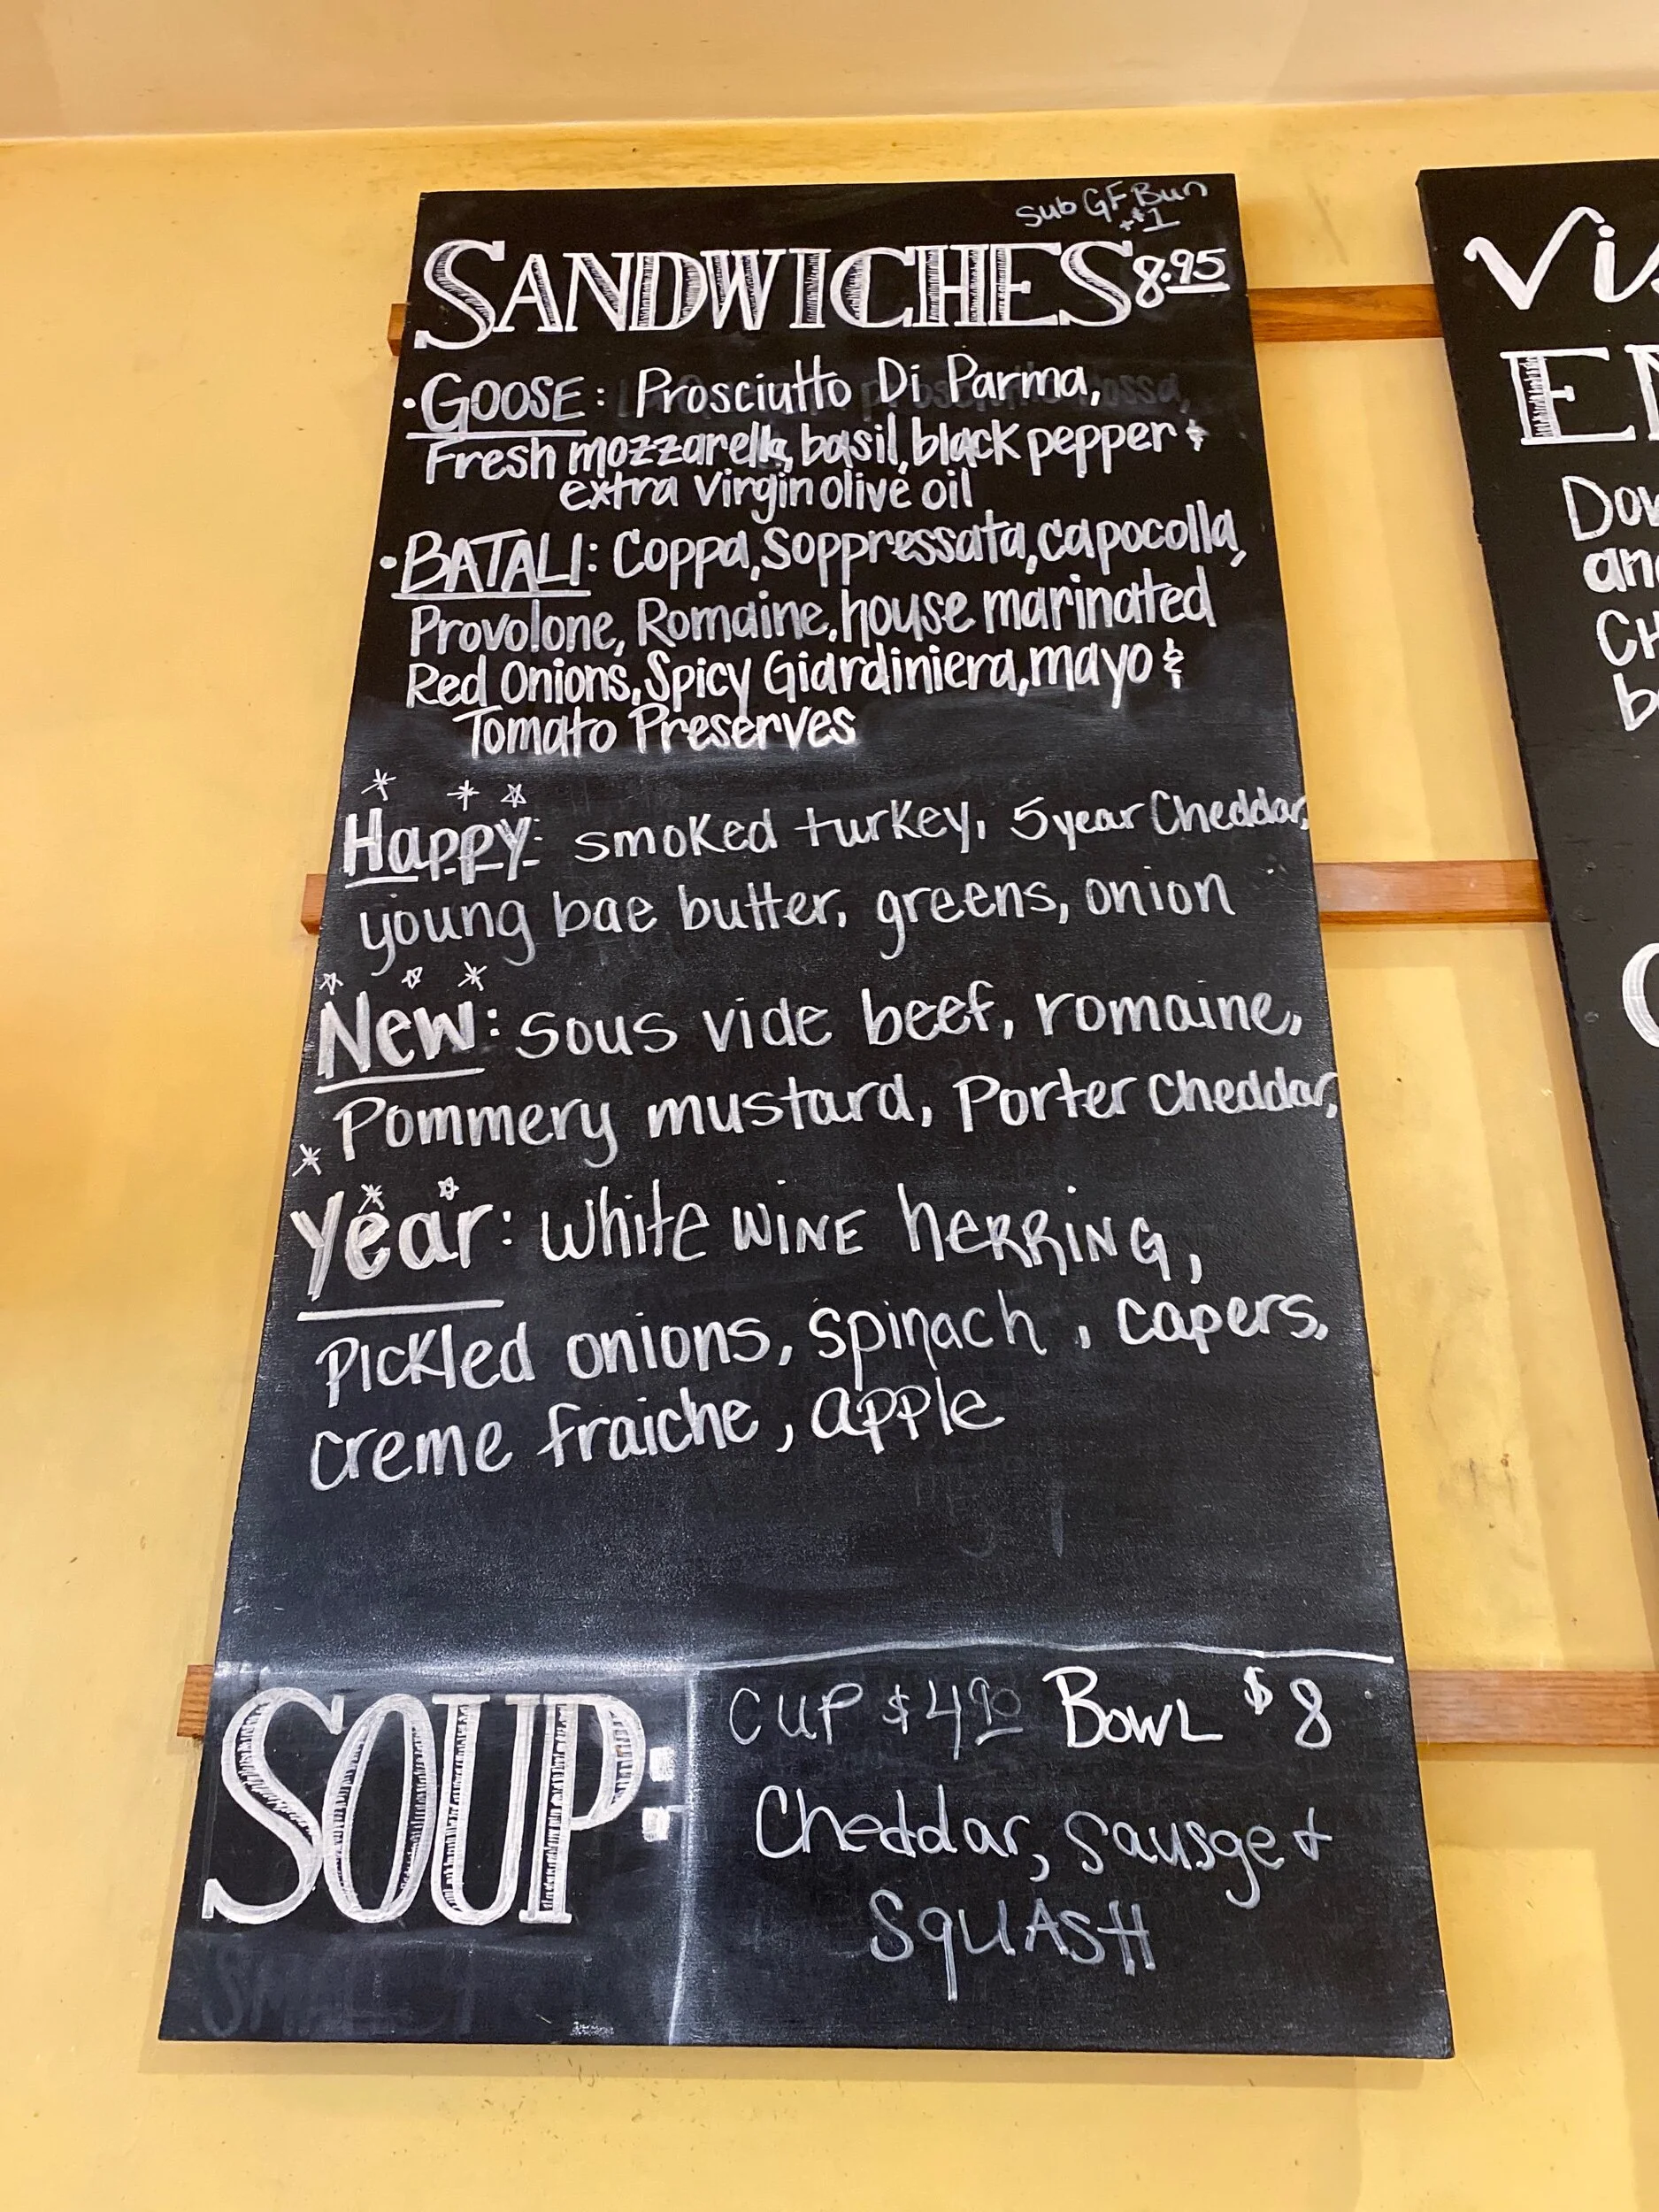 Sub GF Bun
+$1
SANDWICHES 8.95
• GOOSE: Prosciutto Di Parma,
Fresh mozzarella, basil, black pepper &
extra virgin olive oil
• BATALI: Coppa, Soppressata, capocolla,
Provolone, Romaine, house marinated
Red Onions, Spicy Giardiniera, mayo &
Tomato Preserves
Happy: smoked turkey, 5 year Cheddar,
young bae butter, greens, onion
New: sous vide beef, romaine,
Pommery mustard, Porter cheddar,
Year: white WINE herring,
Pickled onions, spinach, capers,
creme fraiche, apple
SOUP:
CUP $4.90 BOWL $8
Cheddar, Sausge +
SquASH
Vis
EN
Dow
and
CH
be